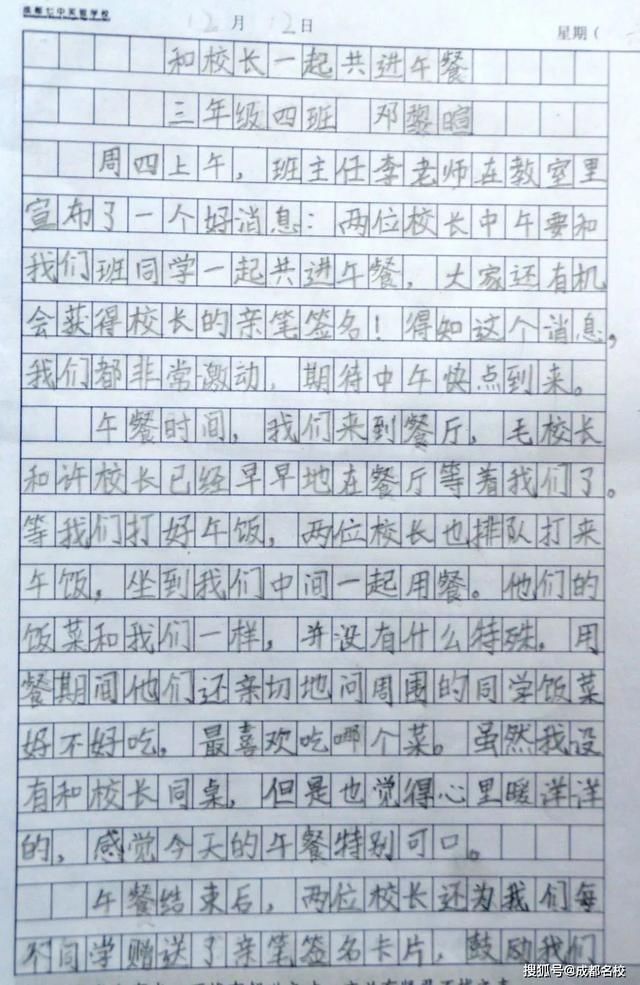 成都七中实验学校
12月12日 星期(
和校长一起共进午餐
三年级四班 邓黎暄
周四上午，班主任李老师在教室里
宣布了一个好消息：两位校长中午要和
我们班同学一起共进午餐，大家还有机
会获得校长的亲笔签名！得知这个消息，
我们都非常激动，期待中午快点到来。
午餐时间，我们来到餐厅，毛校长
和许校长已经早早地在餐厅等着我们了。
等我们打好午饭，两位校长也排队打来
午饭，坐到我们中间一起用餐。他们的
饭菜和我们一样，并没有什么特殊，用
餐期间他们还亲切地问周围的同学饭菜
好不好吃，最喜欢吃哪个菜。虽然我没
有和校长同桌，但是也觉得心里暖洋洋
的，感觉今天的午餐特别可口。
午餐结束后，两位校长还为我们每
个同学赠送了亲笔签名卡片，鼓励我们
搜狐号@成都名校